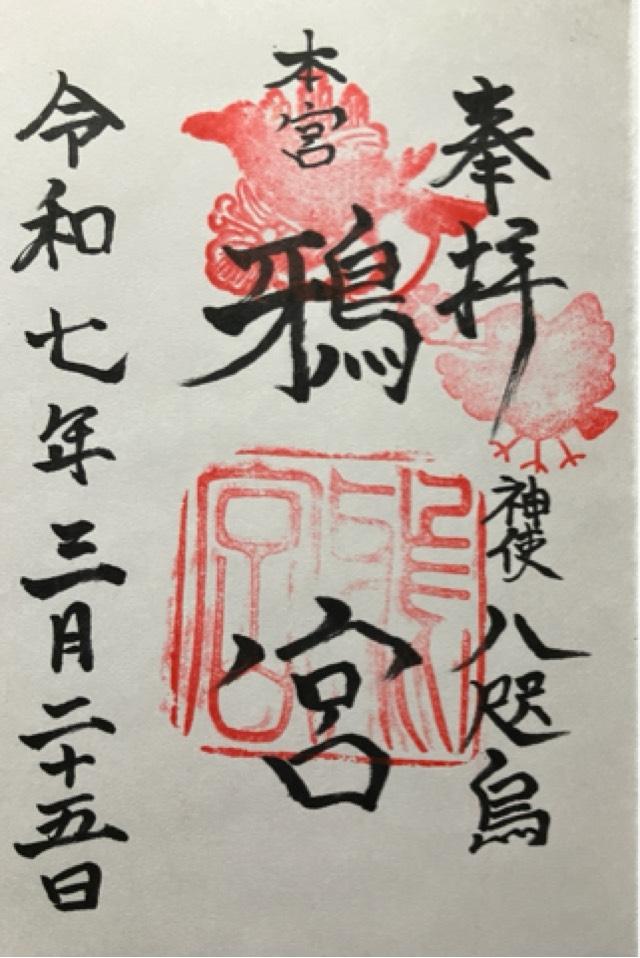 奉拝
神使 八咫烏
本宮
鴉宮
令和七年三月二十五日